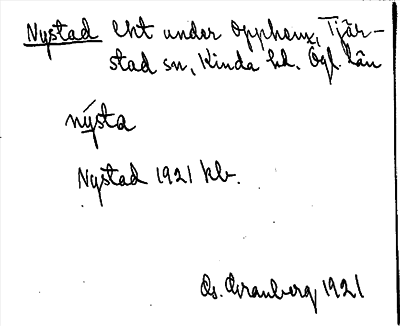 Nystad Lht under Opphem, Tjär-
stad sn, Kinda hd. Ögl. län
nýsta
Nystad 1921 kb.
G. Granberg 1921